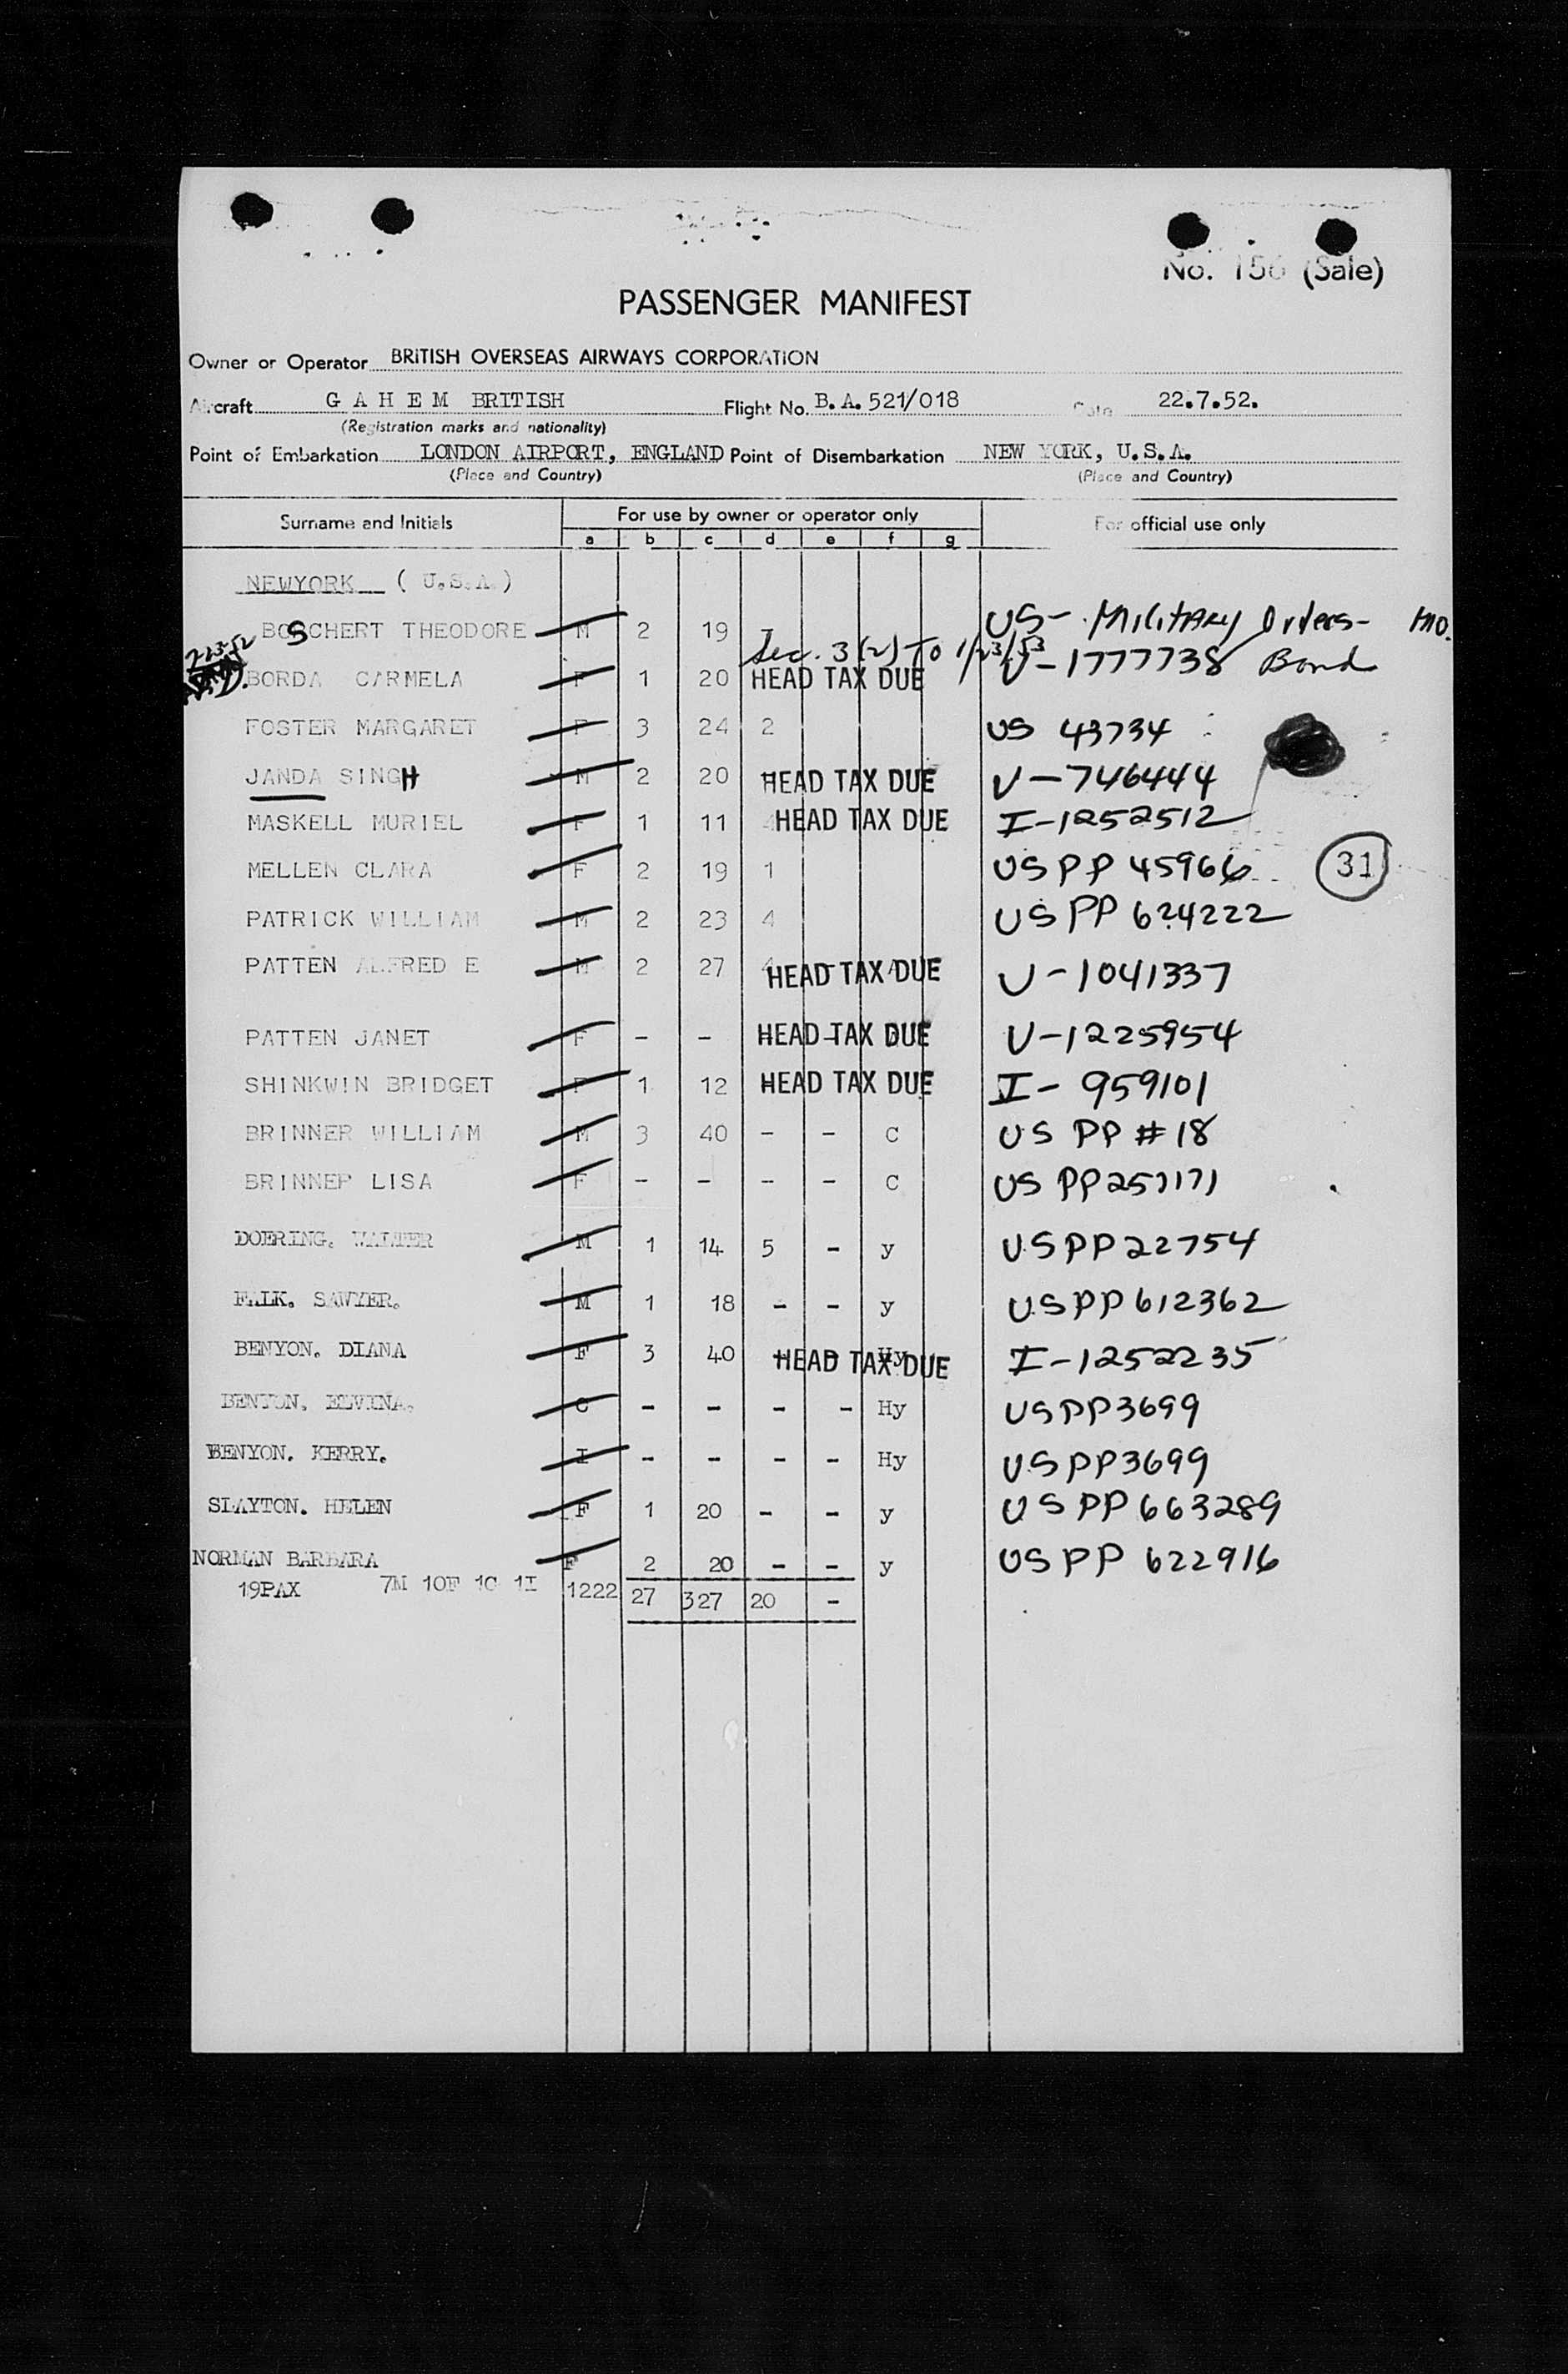 No. 156 (Sale)
PASSENGER MANIFEST
Owner or Operator BRITISH OVERSEAS AIRWAYS CORPORATION
Aircraft G A H E M BRITISH Flight No. B.A. 521/018 Date 22.7.52.
(Registration marks and nationality)
Point of Embarkation LONDON AIRPORT, ENGLAND Point of Disembarkation NEW YORK, U.S.A.
(Place and Country) (Place and Country)
Surname and Initials For use by owner or operator only For official use only
a b c d e f g
NEWYORK ( U.S.A.)
BOSCHERT THEODORE M 2 19 US - Military Orders - mo.
7-23-52 Sec. 3(2) To 1/23/53
BORDA CARMELA F 1 20 HEAD TAX DUE V-1777738 Bond
FOSTER MARGARET F 3 24 2 US 43734
JANDA SINGH M 2 20 HEAD TAX DUE V-746444
MASKELL MURIEL F 1 11 4 HEAD TAX DUE I-1252512
MELLEN CLARA F 2 19 1 US PP 45966 31
PATRICK WILLIAM M 2 23 4 US PP 624222
PATTEN ALFRED E M 2 27 4 HEAD TAX DUE V-1041337
PATTEN JANET F - - HEAD TAX DUE V-1225954
SHINKWIN BRIDGET F 1 12 HEAD TAX DUE I-959101
BRINNER WILLIAM M 3 40 - - C US PP #18
BRINNER LISA F - - - - C US PP 257171
DOERING. WALTER M 1 14 5 - y US PP 22754
FALK. SAWYER. M 1 18 - - y US PP 612362
BENYON. DIANA F 3 40 - - Hy HEAD TAX DUE I-1252235
BENYON. ELVINA. C - - - - Hy US PP 3699
BENYON. KERRY. I - - - - Hy US PP 3699
SLAYTON. HELEN F 1 20 - - y US PP 663289
NORMAN BARBARA F 2 20 - - y US PP 622916
19PAX 7M 10F 1C 1I 1222 27 327 20 -